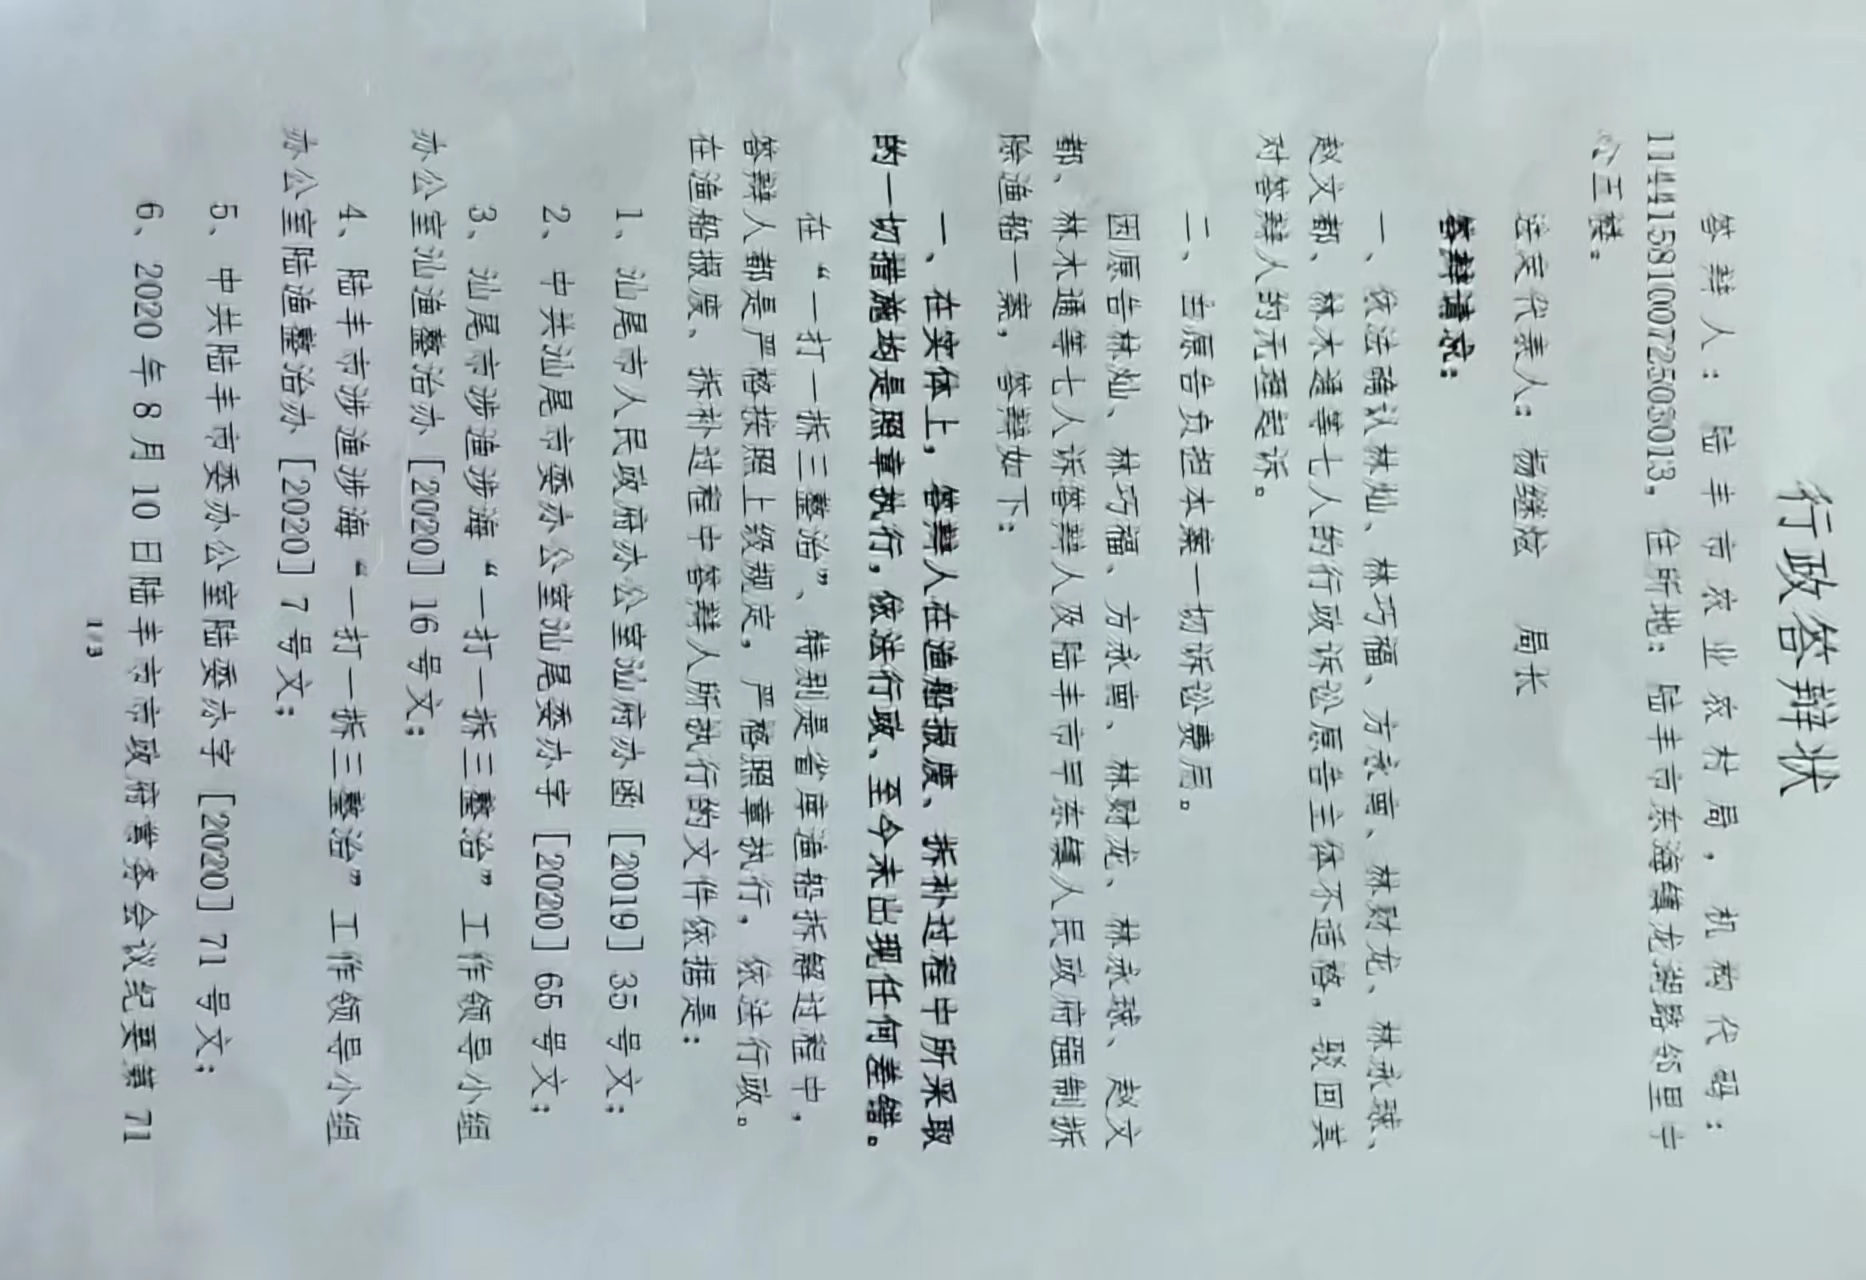 行政答辩状
答辩人：陆丰市农业农村局，机构代码：
114415810072503013，住所地：陆丰市东海镇龙湖路邻里中
心三楼。
法定代表人：杨继 局长
答辩请求：
一、依法确认林灿、林巧福、方永画、林财龙、林永球、
赵文都、林木通等七人的行政诉讼原告主体不适格，驳回其
对答辩人的无理起诉。
二、由原告负担本案一切诉讼费用。
因原告林灿、林巧福、方永画、林财龙、林永球、赵文
都、林木通等七人诉答辩人及陆丰市甲东镇人民政府强制拆
除渔船一案，答辩如下：
一、在实体上，答辩人在渔船报废、拆补过程中所采取
的一切措施均是照章执行，依法行政、至今未出现任何差错。
在“一打一拆三整治”、特别是省库渔船拆解过程中，
答辩人都是严格按照上级规定，严格照章执行，依法行政。
在渔船报废、拆补过程中答辩人所执行的文件依据是：
1、汕尾市人民政府办公室汕府办函［2019］35号文；
2、中共汕尾市委办公室汕尾委办字［2020］65号文；
3、汕尾市涉渔涉海“一打一拆三整治”工作领导小组
办公室汕渔整治办［2020］16号文；
4、陆丰市涉渔涉海“一打一拆三整治”工作领导小组
办公室陆渔整治办［2020］7号文；
5、中共陆丰市委办公室陆委办字［2020］71号文；
6、2020年8月10日陆丰市市政府常务会议纪要第71
1/3